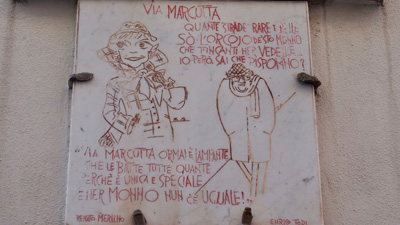 VIA MARCUTTA
QUANTE STRADE RARE E BELLE
SÒ L'ORGOJO DE STO MONNO
CHE T'INCANTI NER VEDELLE
IO PERÒ SAI CHE RISPONNO?
"VIA MARCUTTA ORMAI È LAMPANTE
CHE LE BATTE TUTTE QUANTE
PERCHÈ È UNICA E SPECIALE
E NER MONNO NUN C'È UGUALE!"